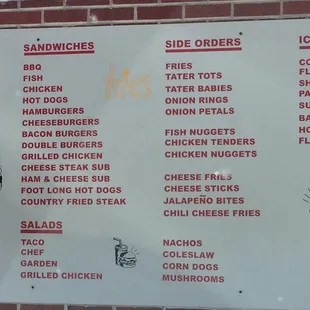 SANDWICHES
BBQ
FISH
CHICKEN
HOT DOGS
HAMBURGERS
CHEESEBURGERS
BACON BURGERS
DOUBLE BURGERS
GRILLED CHICKEN
CHEESE STEAK SUB
HAM & CHEESE SUB
FOOT LONG HOT DOGS
COUNTRY FRIED STEAK
SALADS
TACO
CHEF
GARDEN
GRILLED CHICKEN
SIDE ORDERS
FRIES
TATER TOTS
TATER BABIES
ONION RINGS
ONION PETALS
FISH NUGGETS
CHICKEN TENDERS
CHICKEN NUGGETS
CHEESE FRIES
CHEESE STICKS
JALAPEÑO BITES
CHILI CHEESE FRIES
NACHOS
COLESLAW
CORN DOGS
MUSHROOMS
IC
CO
FL
SH
PA
SU
BA
HO
FL